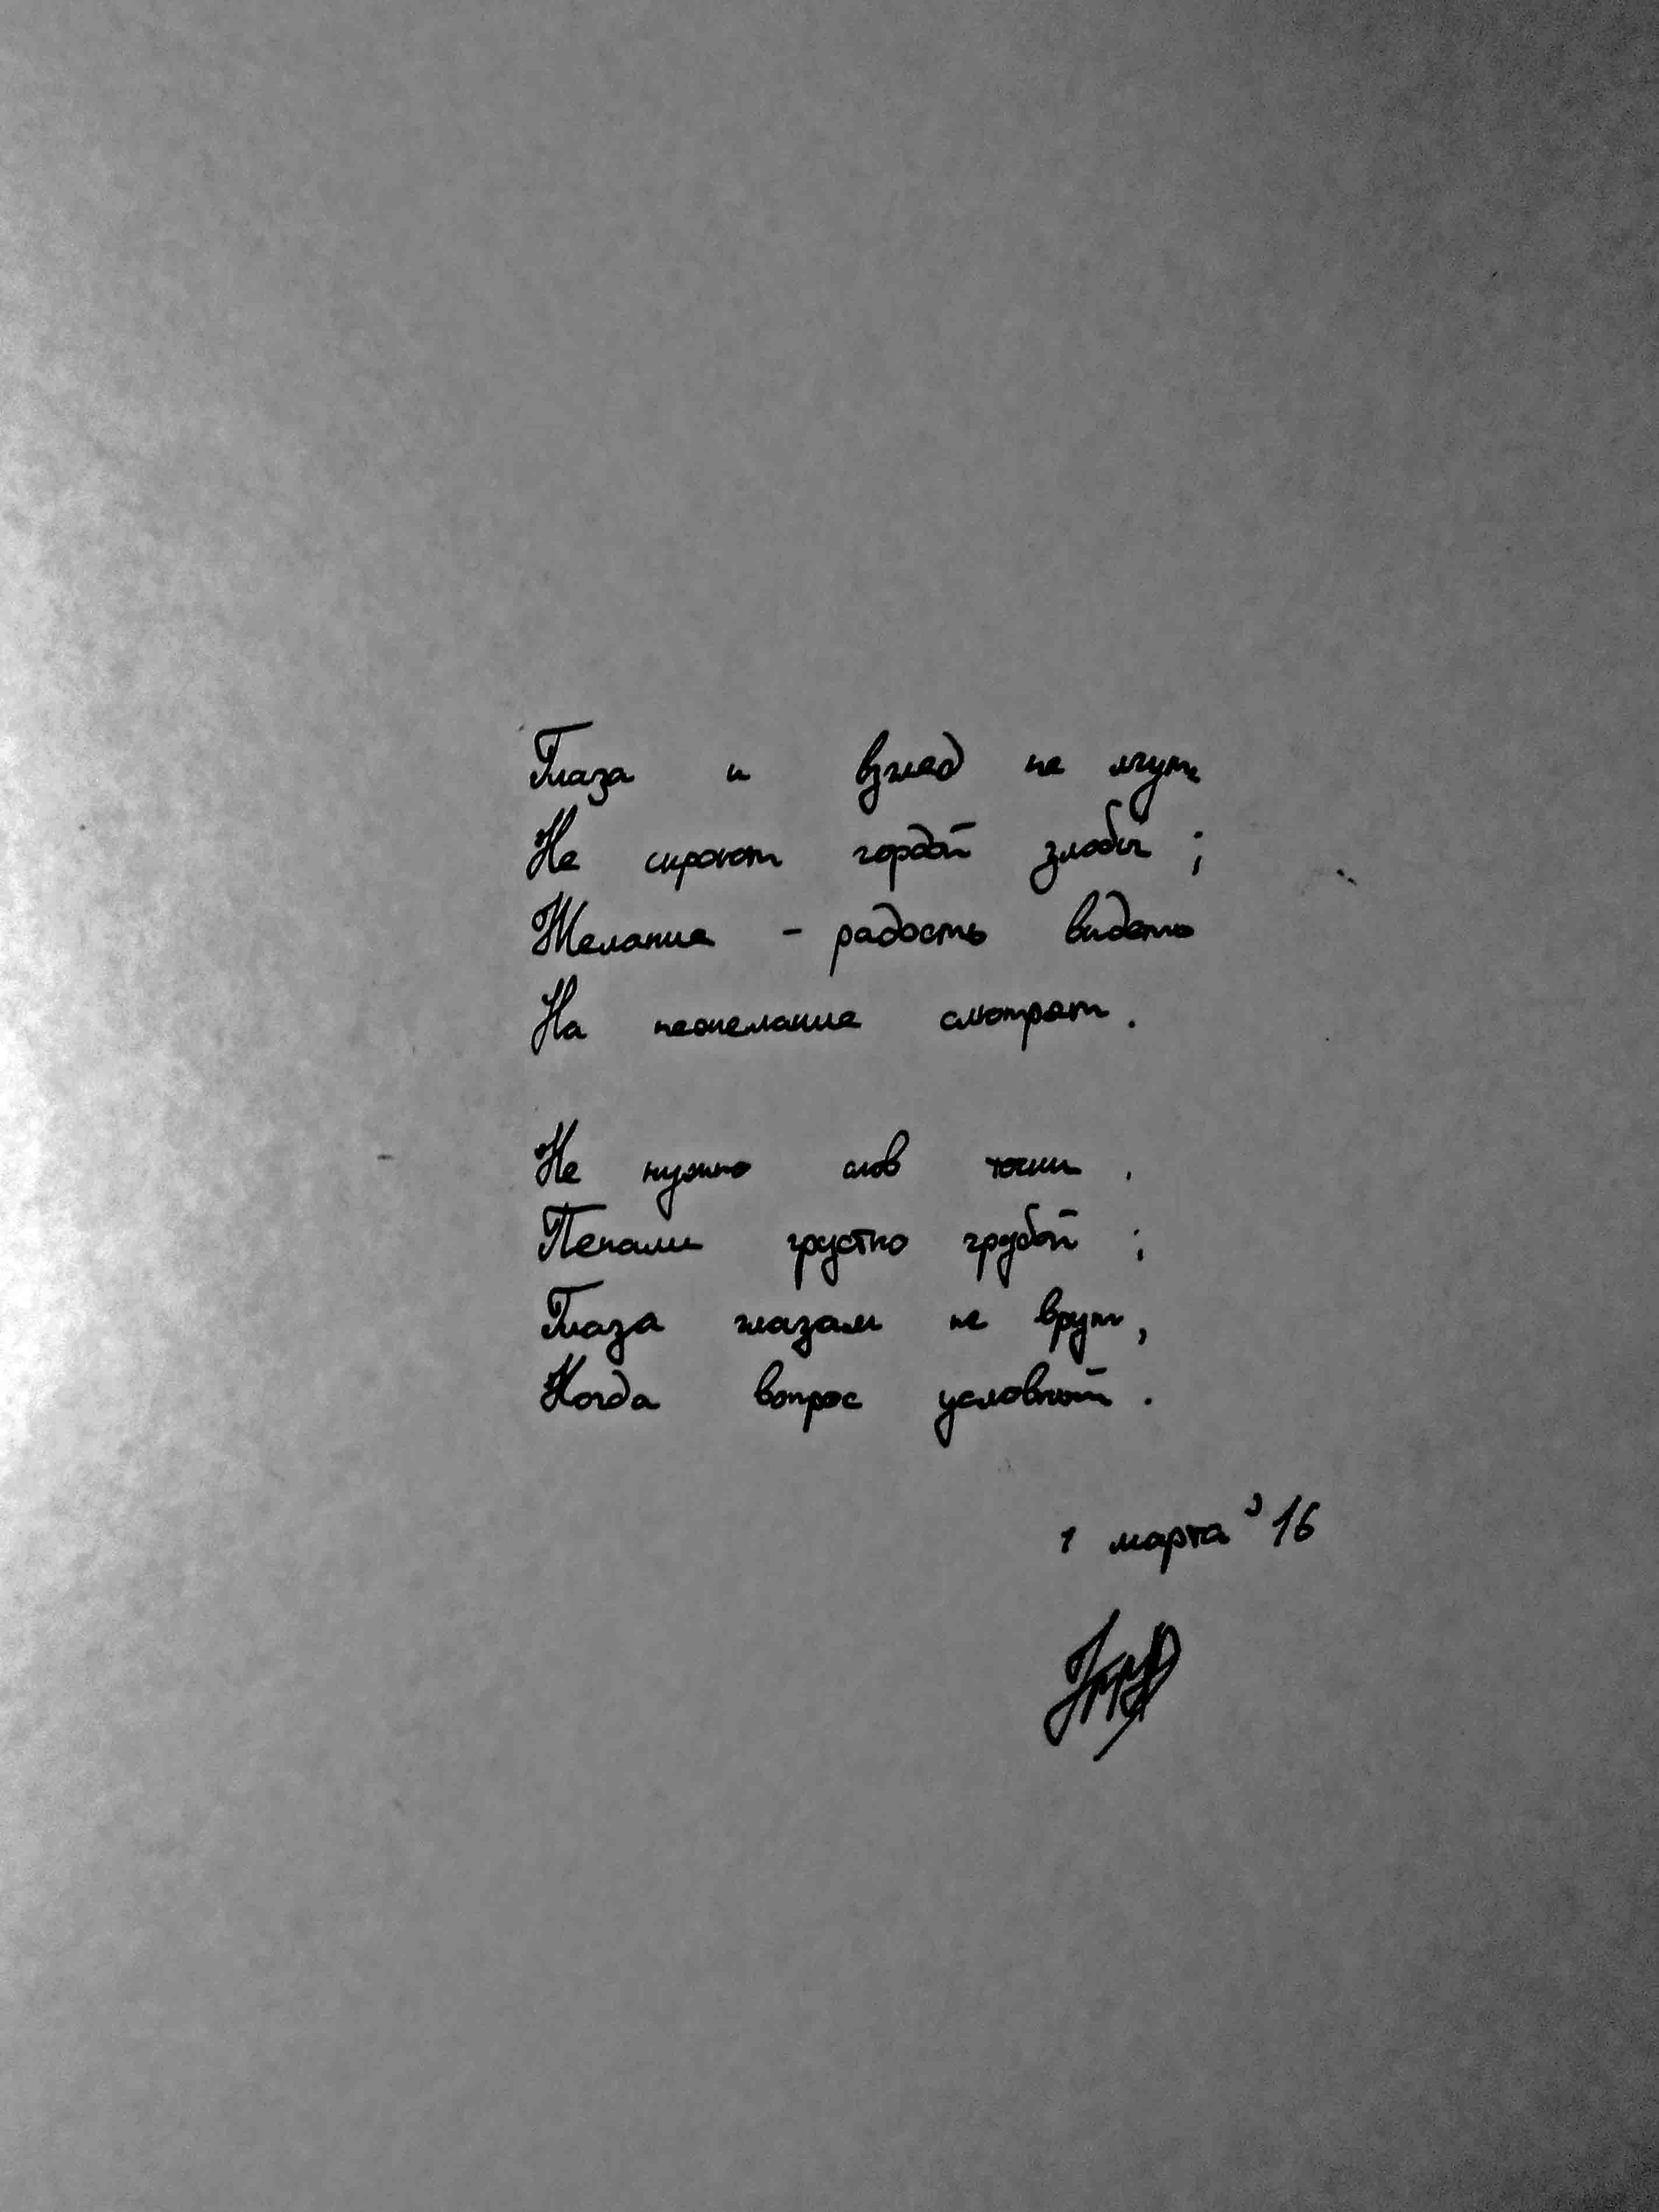 Глаза и взгляд не лгут
Не скроют гордой злобы;
Желание - радость видеть
На нежелание смотрят.
Не нужно слов тоски,
Печали грустно грубой;
Глаза глазам не врут,
Когда вопрос условный.
1 марта '16